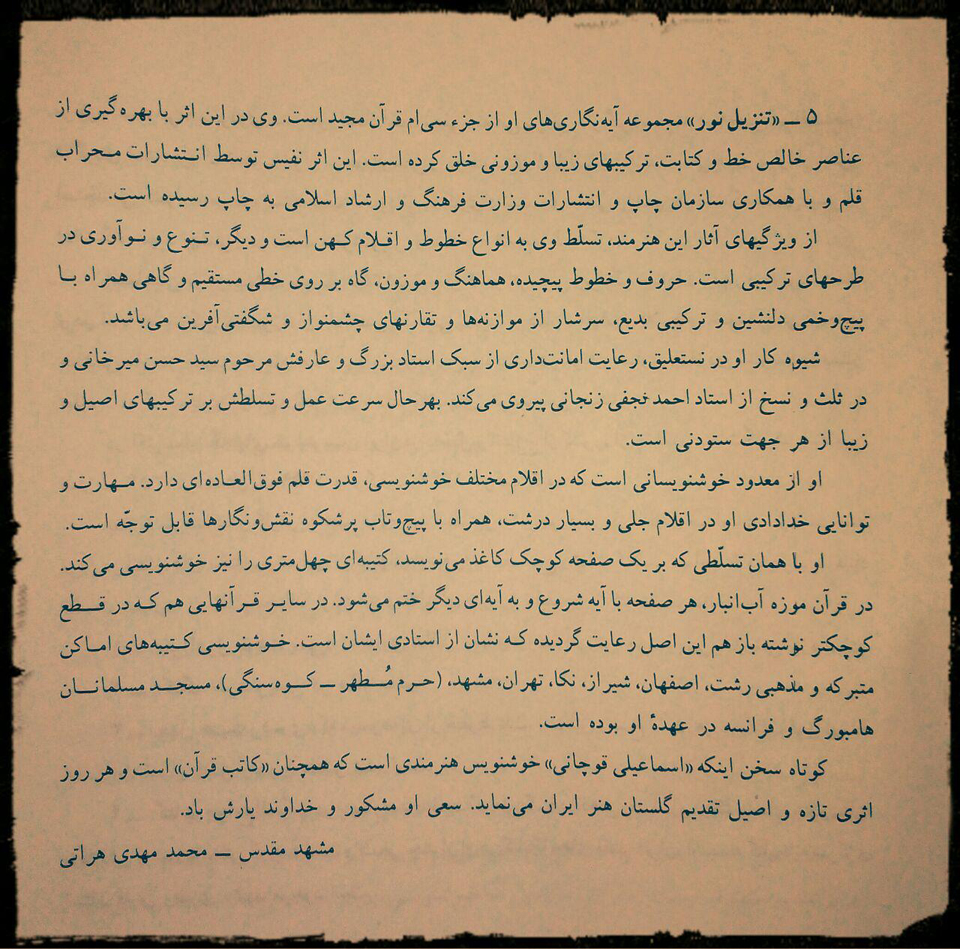 ۵ ــ «تنزیل نور» مجموعه آیه‌نگاری‌های او از جزء سی‌ام قرآن مجید است. وی در این اثر با بهره‌گیری از
عناصر خالص خط و کتابت، ترکیبهای زیبا و موزونی خلق کرده است. این اثر نفیس توسط انـتشارات مـحراب
قلم و با همکاری سازمان چاپ و انتشارات وزارت فرهنگ و ارشاد اسلامی به چاپ رسیده است.
از ویژگیهای آثار این هنرمند، تسلّط وی به انواع خطوط و اقـلام کـهن است و دیگر، تـنوع و نـوآوری در
طرحهای ترکیبی است. حروف و خطوط پیچیده، هماهنگ و موزون، گاه بر روی خطی مستقیم و گاهی همراه بـا
پیچ‌وخمی دلنشین و ترکیبی بدیع، سرشار از موازنه‌ها و تقارنهای چشمنواز و شگفتی‌آفرین می‌باشد.
شیوه کار او در نستعلیق، رعایت امانت‌داری از سبک استاد بزرگ و عارفش مرحوم سید حسن میرخانی و
در ثلث و نسخ از استاد احمد نجفی زنجانی پیروی می‌کند. بهرحال سرعت عمل و تسلطش بر ترکیبهای اصیل و
زیبا از هر جهت ستودنی است.
او از معدود خوشنویسانی است که در اقلام مختلف خوشنویسی، قدرت قلم فوق‌العاده‌ای دارد. مـهارت و
توانایی خدادادی او در اقلام جلی و بسیار درشت، همراه با پیچ‌وتاب پرشکوه نقش‌ونگارها قابل توجّه است.
او با همان تسلّطی که بر یک صفحه کوچک کاغذ می‌نویسد، کتیبه‌ای چهل‌متری را نیز خوشنویسی می‌کند.
در قرآن موزه آب‌انبار، هر صفحه با آیه شروع و به آیه‌ای دیگر ختم می‌شود. در سایـر قـرآنهایی هم کـه در قـطع
کوچکتر نوشته باز هم این اصل رعایت گردیده کـه نشان از استادی ایشان است. خـوشنویسی کـتیبه‌های امـاکن
متبرکه و مذهبی رشت، اصفهان، شیراز، نکا، تهران، مشهد، (حـرم مُـطهر ــ کـوه‌سنگی)، مسجـد مسلمانـان
هامبورگ و فرانسه در عهدهٔ او بوده است.
کوتاه سخن اینکه «اسماعیلی قوچانی» خوشنویس هنرمندی است که همچنان «کاتب قرآن» است و هر روز
اثری تازه و اصیل تقدیم گلستان هنر ایران می‌نماید. سعی او مشکور و خداوند یارش باد.
مشهد مقدس ــ محمد مهدی هراتی